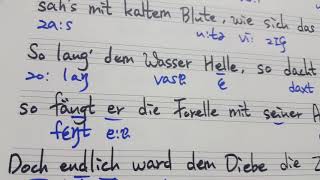 sah's mit kaltem Blute, wie sich das
za:s u:tə vi: zɪç
So lang' dem Wasser Helle, so dacht
zo: laŋ vasɐ ɛ daxt
so fängt er die Forelle mit seiner A
fɛŋt e:ɐ
Doch endlich ward dem Diebe die Z